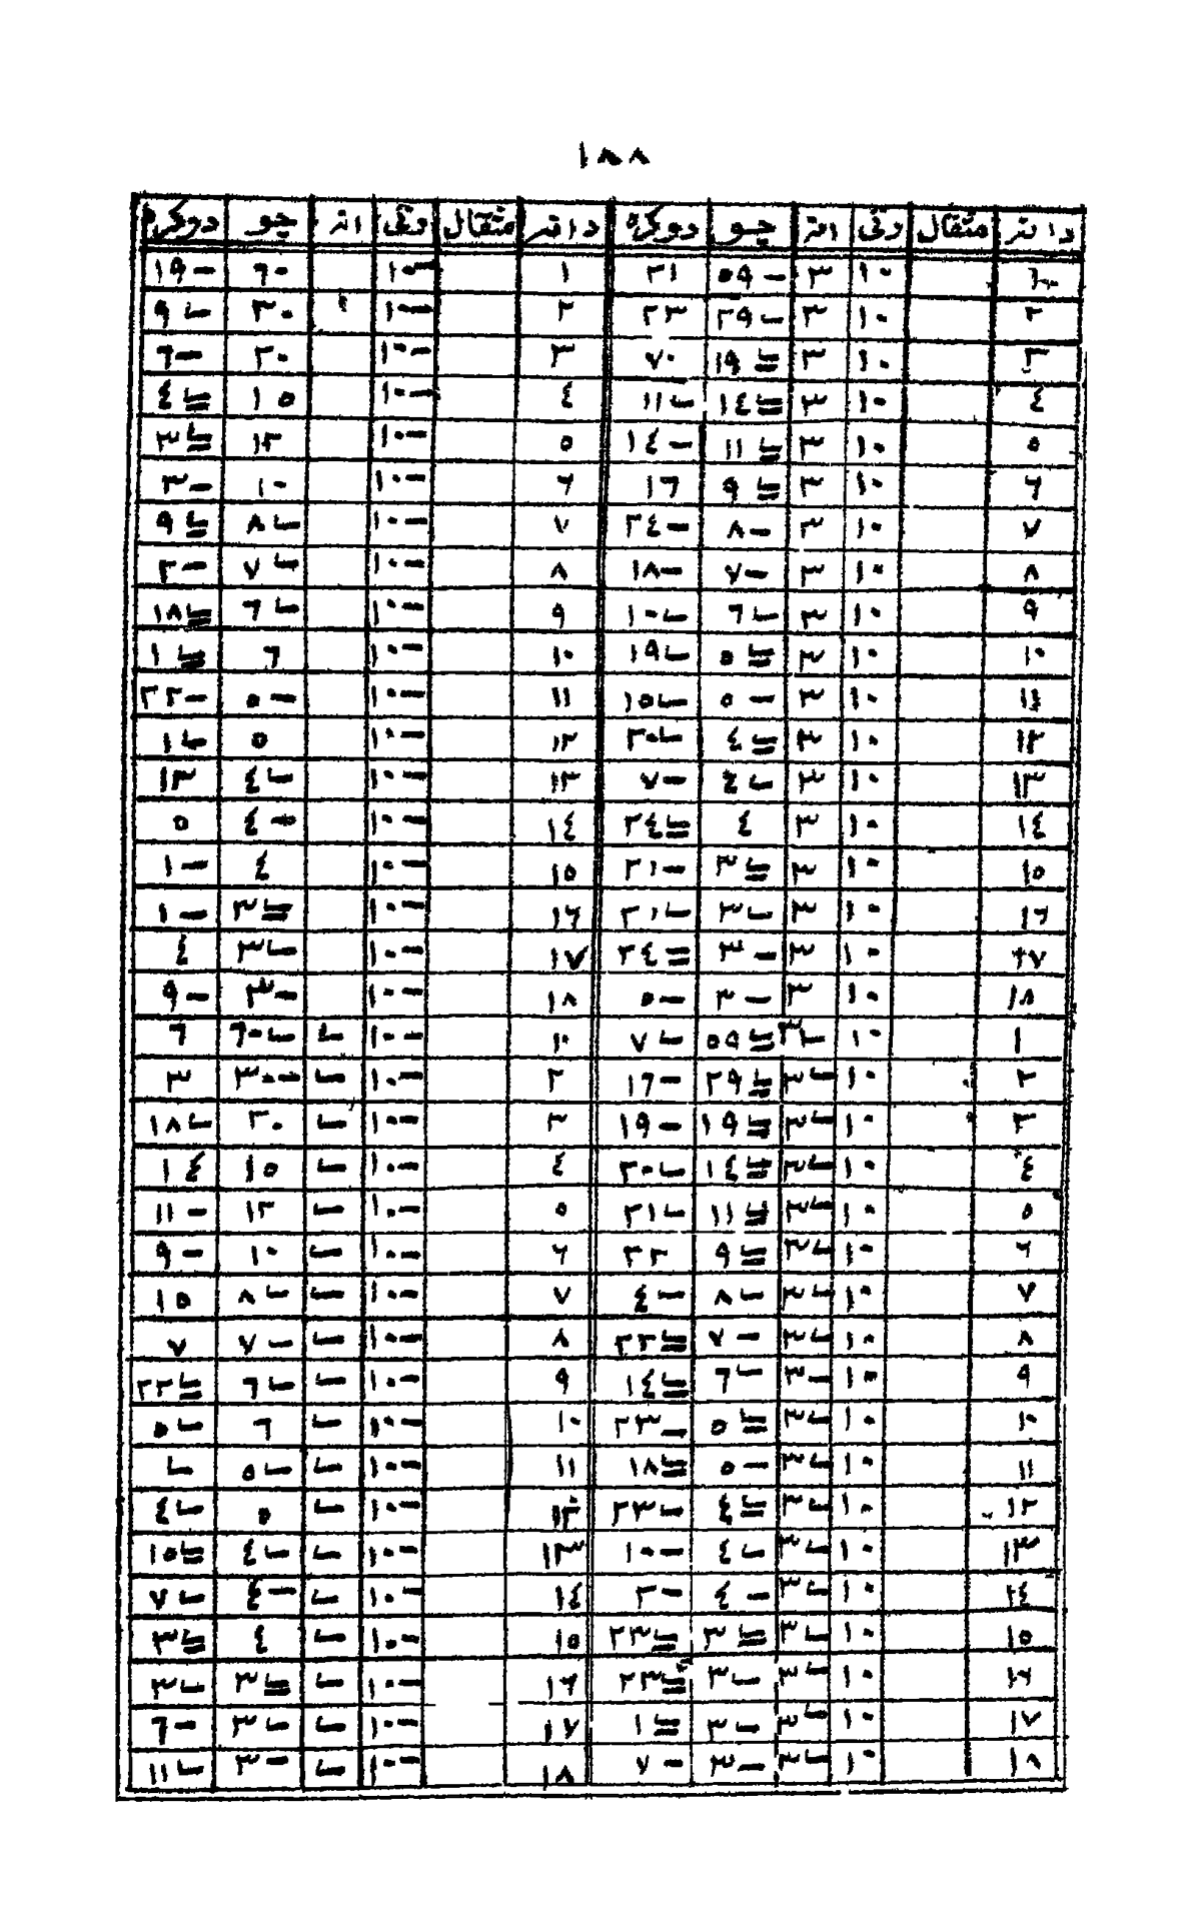 ١٨٨
دانه مثقال رتى انه چو دوكره دانه مثقال رتى انه چو دوكره
١٠ ٣ ٥٩ - ٢١ ١ ١٠ - ٦٠ ١٩ -
٢ ١٠ ٣ ٢٩ ٢٣ ٢ ١٠ - ٣٠ ٩
٣ ١٠ ٣ ١٩ ٧٠ ٣ ١٠ - ٢٠ ٦ -
٤ ١٠ ٣ ١٤ ١١ ٤ ١٠ - ١٥ ٤
٥ ١٠ ٣ ١١ ١٤ - ٥ ١٠ - ١٢ ٣
٦ ١٠ ٣ ٩ ١٦ ٦ ١٠ - ١٠ ٣ -
٧ ١٠ ٣ ٨ - ٢٤ - ٧ ١٠ - ٨ ٩
٨ ١٠ ٣ ٧ - ١٨ - ٨ ١٠ - ٧ ٢ -
٩ ١٠ ٣ ٦ ١٠ ٩ ١٠ - ٦ ١٨
١٠ ١٠ ٣ ٥ ١٩ ١٠ ١٠ - ٦ ١
١١ ١٠ ٣ ٥ - ١٥ ١١ ١٠ - ٥ - ٢٢ -
١٢ ١٠ ٣ ٤ ٢٠ ١٢ ١٠ - ٥ ١
١٣ ١٠ ٣ ٤ ٧ - ١٣ ١٠ - ٤ ١٣
١٤ ١٠ ٣ ٤ ٢٤ ١٤ ١٠ - ٤ - ٥
١٥ ١٠ ٣ ٣ ٢١ - ١٥ ١٠ - ٤ ١ -
١٦ ١٠ ٣ ٣ ٢١ ١٦ ١٠ - ٣ ١ -
١٧ ١٠ ٣ ٣ - ٢٤ ١٧ ١٠ - ٣ ٤
١٨ ١٠ ٣ ٣ - ٥ - ١٨ ١٠ - ٣ - ٩ -
١ ١٠ ٣ ٥٩ ٧ ١٠ ١٠ - ٦٠ ٦
٢ ١٠ ٣ ٢٩ ١٦ - ٢ ١٠ - ٣٠ - ٣
٣ ١٠ ٣ ١٩ ١٩ - ٣ ١٠ - ٢٠ ١٨
٤ ١٠ ٣ ١٤ ٢٠ ٤ ١٠ - ١٥ ١٤
٥ ١٠ ٣ ١١ ٢١ ٥ ١٠ - ١٢ ١١ -
٦ ١٠ ٣ ٩ ٢٢ ٦ ١٠ - ١٠ ٩ -
٧ ١٠ ٣ ٨ ٤ - ٧ ١٠ - ٨ ١٥
٨ ١٠ ٣ ٧ - ٢٢ ٨ ١٠ - ٧ - ٧
٩ ١٠ ٣ ٦ ١٤ ٩ ١٠ - ٦ ٢٢
١٠ ١٠ ٣ ٥ ٢٣ - ١٠ ١٠ - ٦ ٥
١١ ١٠ ٣ ٥ - ١٨ ١١ ١٠ - ٥
١٢ ١٠ ٣ ٤ ٢٣ ١٢ ١٠ - ٥ ٤
١٣ ١٠ ٣ ٤ ١٠ - ١٣ ١٠ - ٤ ١٥
١٤ ١٠ ٣ ٤ - ٢ - ١٤ ١٠ - ٤ - ٧
١٥ ١٠ ٣ ٣ ٢٣ ١٥ ١٠ - ٤ ٣
١٦ ١٠ ٣ ٣ ٢٣ ١٦ ١٠ - ٣ ٣
١٧ ١٠ ٣ ٣ ١ ١٧ ١٠ - ٣ ٦ -
١٨ ١٠ ٣ ٣ - ٧ - ١٨ ١٠ - ٣ - ١١